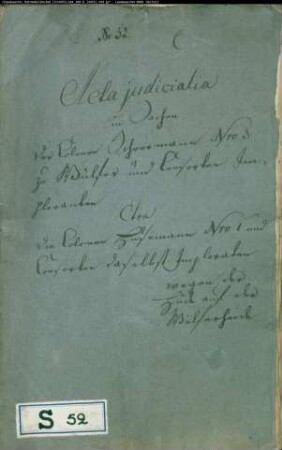 No 52
Acta judicialia
in Sachen
der Colonen Schnormann Nro 3
zu Wülfer und Consorten Im-
ploranten
Ctra
die Colonen Hüsemann Nro 1 und
Consorten daselbst Imploraten
wegen der
Hude auf der
Wülferheide
S 52